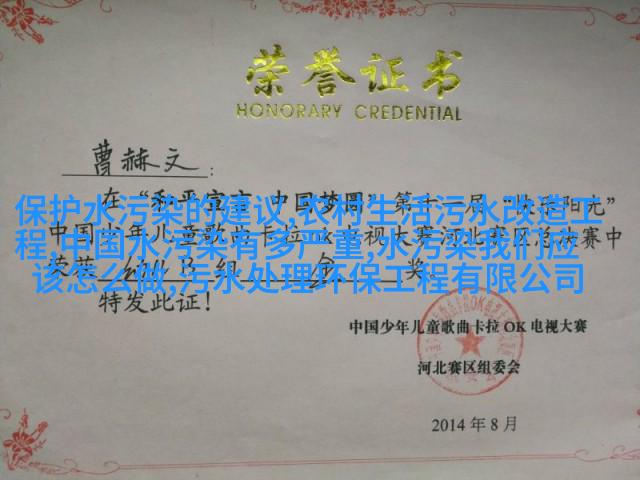 荣誉证书
HONORARY CREDENTIAL
曹赫文:
在“和平宣言 中国梦圆”第十一届
保护水污染的建议,农村生活污水改造工
中国少年儿童歌曲卡拉ok电视大赛河北赛区总决赛中
程,中国水污染有多严重,水污染我们应
荣获 组 金 奖。
该怎么做,污水处理环保工程有限公司
特发此证!
中国少年儿童歌曲卡拉OK电视大赛
河北赛区组委会
2014年8月